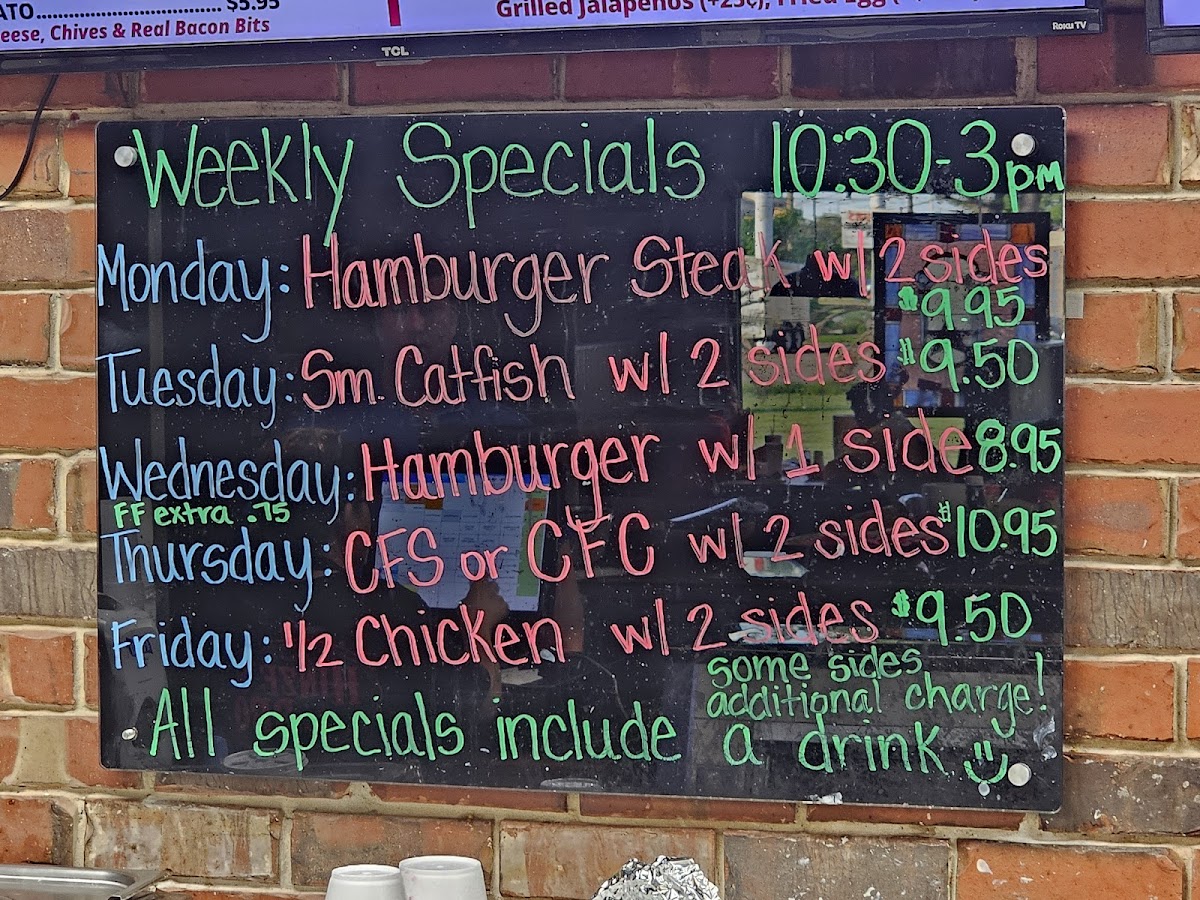 ATO.................................... $5.95
eese, Chives & Real Bacon Bits
Grilled Jalapeños (+25¢), Fried Egg
TCL
Roku TV
Weekly Specials 10:30-3pm
Monday: Hamburger Steak w/ 2 sides
$9.95
Tuesday: Sm. Catfish w/ 2 sides $9.50
Wednesday: Hamburger w/ 1 side 8.95
FF extra .75
Thursday: CFS or CFC w/ 2 sides $10.95
Friday: 1/2 Chicken w/ 2 sides $9.50
some sides
additional charge!
All specials include a drink